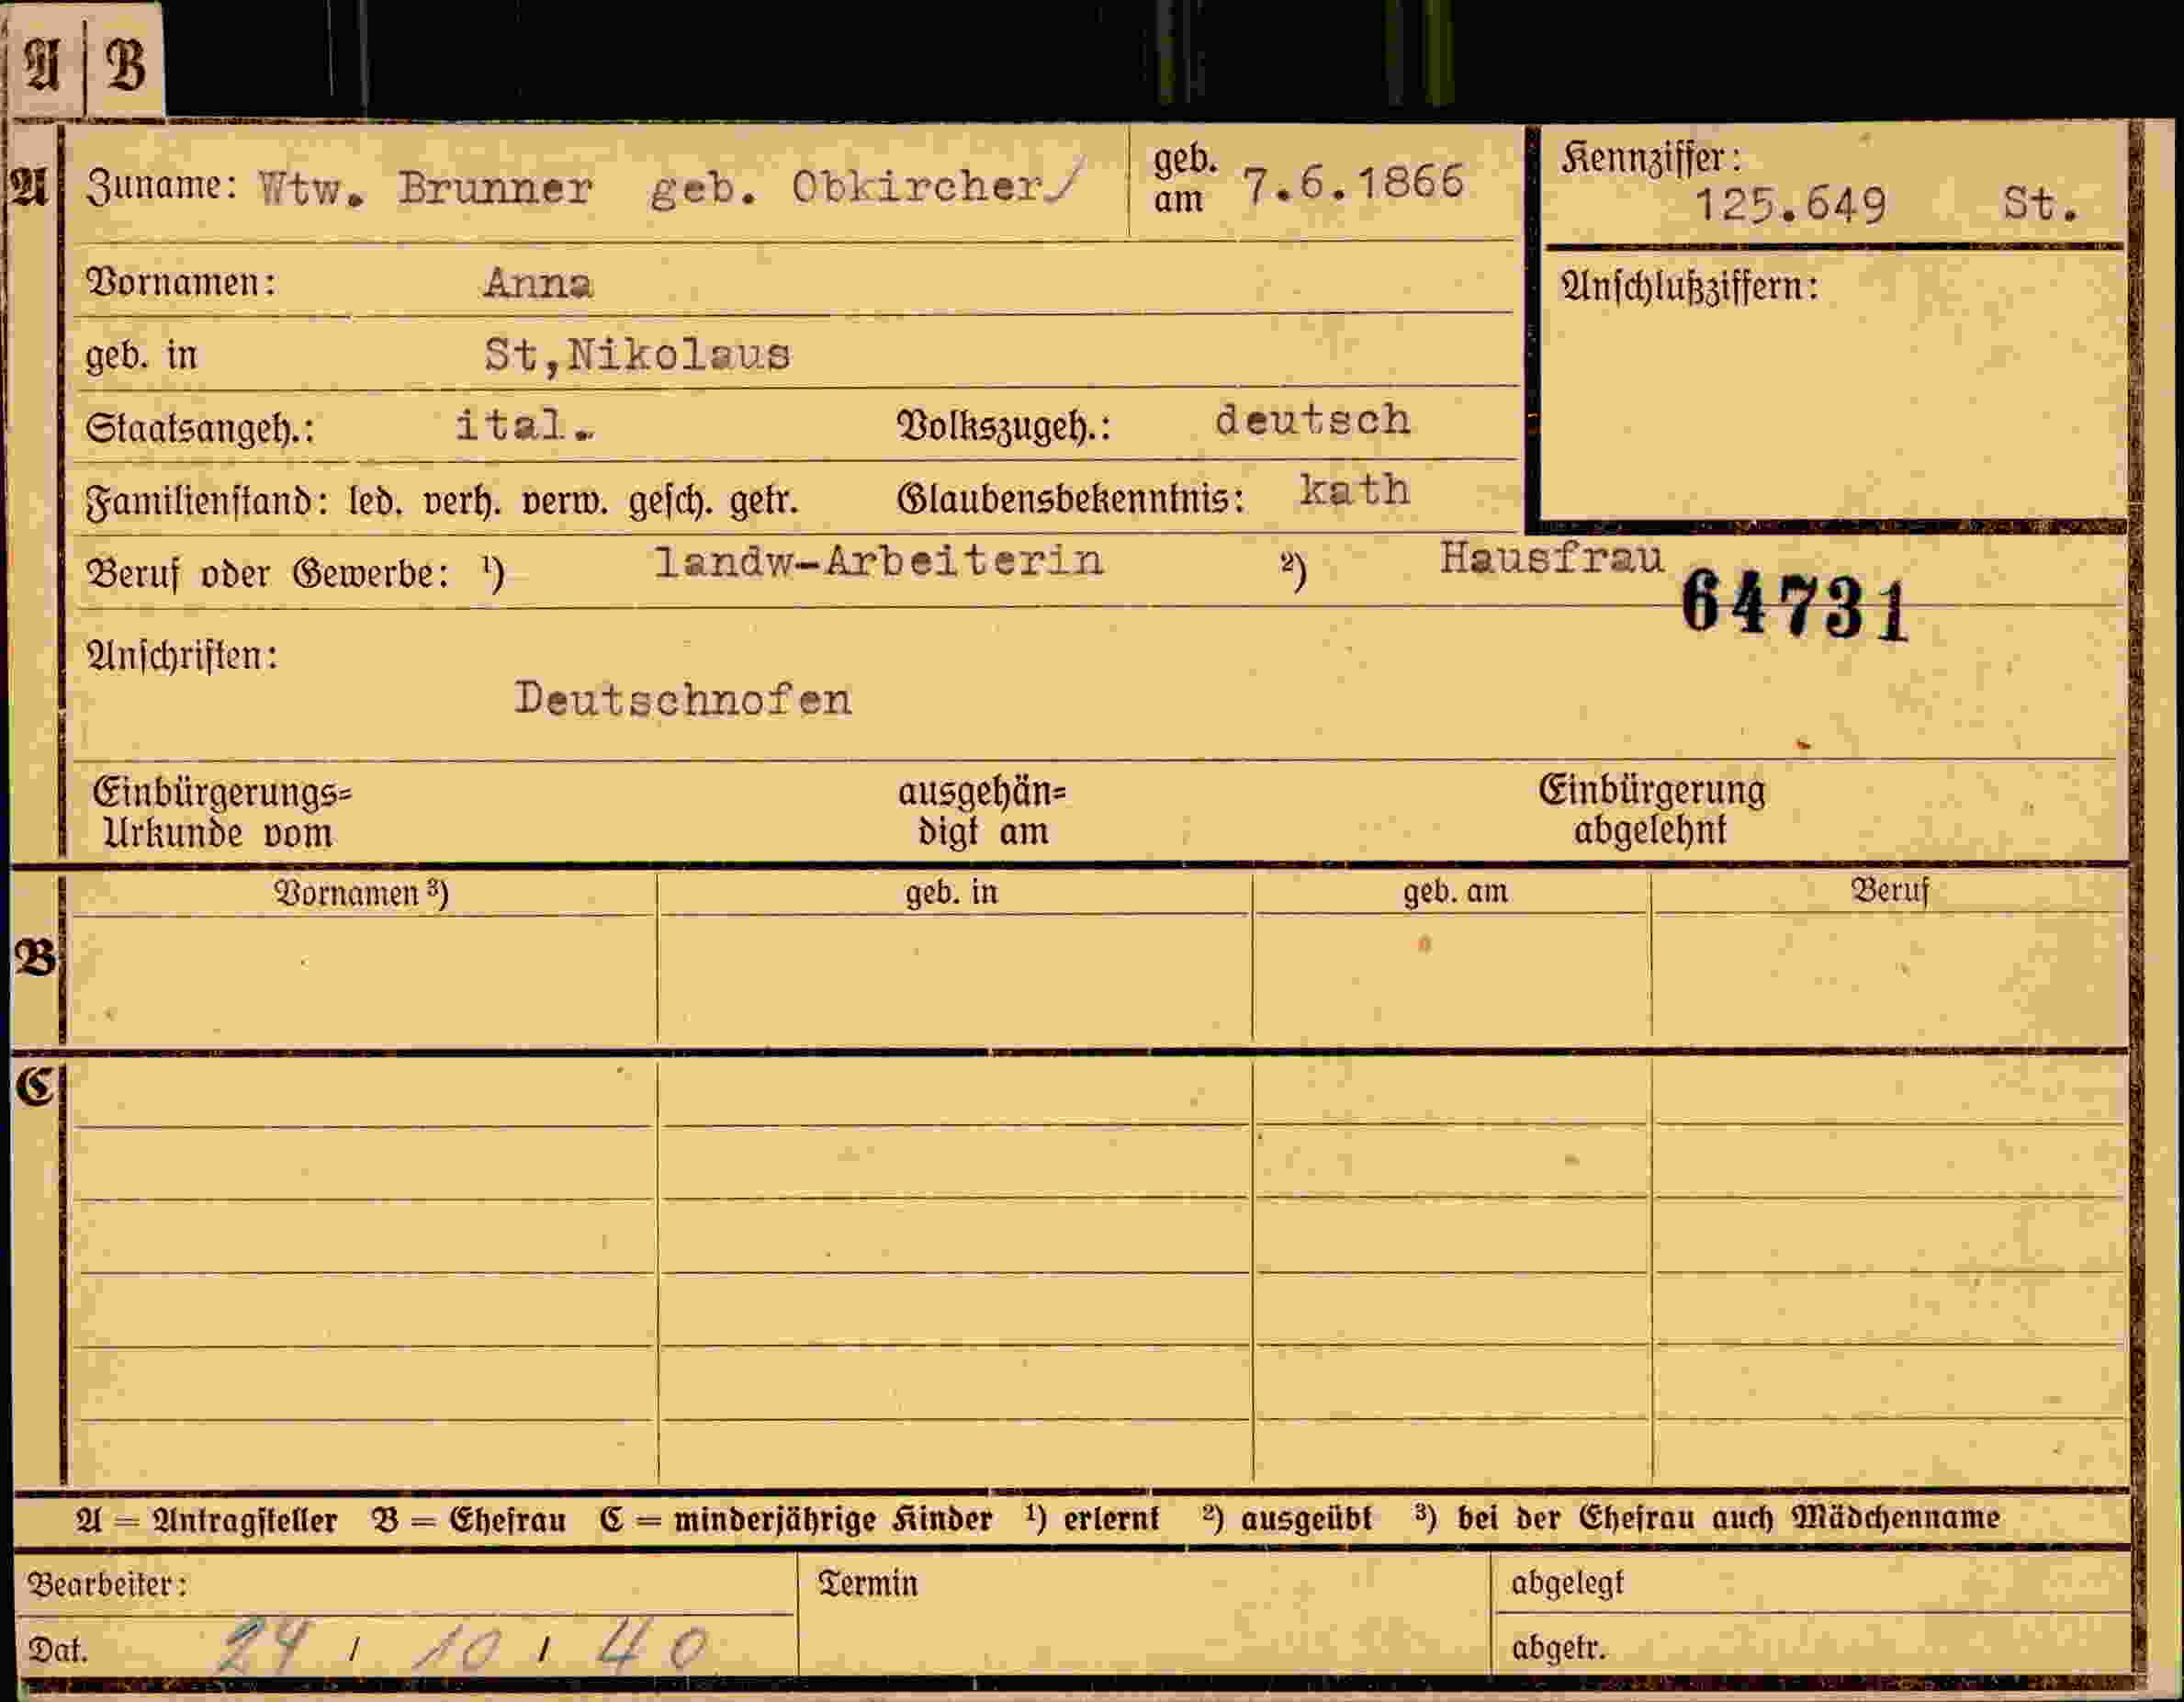 A B
A Zuname: Wtw. Brunner geb. Obkircher/ geb. am 7.6.1866 Kennziffer: 125.649 St.
Vornamen: Anna Anschlußziffern:
geb. in St,Nikolaus
Staatsangeh.: ital. Volkszugeh.: deutsch
Familienstand: led. verh. verw. gesch. getr. Glaubensbekenntnis: kath
Beruf oder Gewerbe: ¹) landw-Arbeiterin ²) Hausfrau
64731
Anschriften:
Deutschnofen
Einbürgerungs= ausgehän= Einbürgerung
Urkunde vom digt am abgelehnt
Vornamen ³) geb. in geb. am Beruf
B
C
A = Antragsteller B = Ehefrau C = minderjährige Kinder ¹) erlernt ²) ausgeübt ³) bei der Ehefrau auch Mädchenname
Bearbeiter: Termin abgelegt
Dat. 24 / 10 / 40 abgetr.